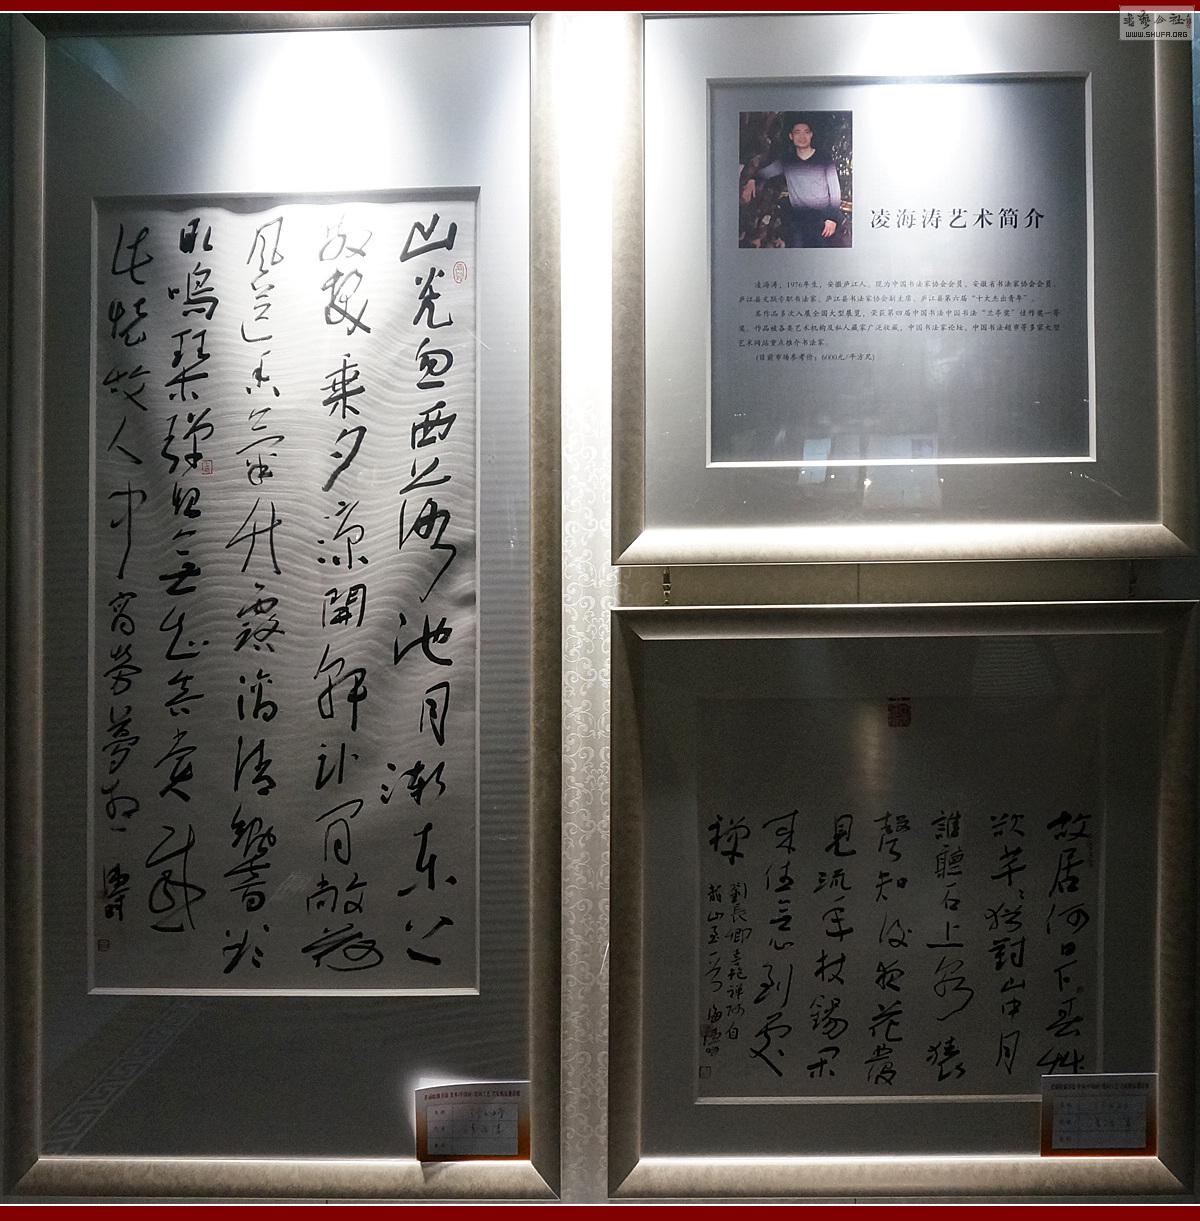 山光忽西落池月漸東上
散髮乘夕涼開軒卧閒敞荷
風送香氣竹露滴清響欲
取鳴琴彈恨無知音賞感
此懷故人中宵勞夢想 海涛
凌海涛艺术简介
凌海涛，1976年生，安徽庐江人。现为中国书法家协会会员，安徽省书法家协会会员，
庐江县文联专职书法家，庐江县书法家协会副主席，庐江县第六届“十大杰出青年”。
其作品多次入展全国大型展览，荣获第四届中国书法中国书法“兰亭奖”佳作奖一等
奖。作品被各类艺术机构及私人藏家广泛收藏，中国书法家论坛、中国书法超市等多家大型
艺术网站重点推介书法家。
(目前市场参考价：6000元/平方尺)
故居何日下春艸
欲芊芊猶對山中月
誰聽石上泉猿
聲知後夜花發
見流年杖錫閑
來往無心到處
禪
劉長卿喜鮑禪師自
龍山至一首 海涛
WWW.SHUFA.ORG